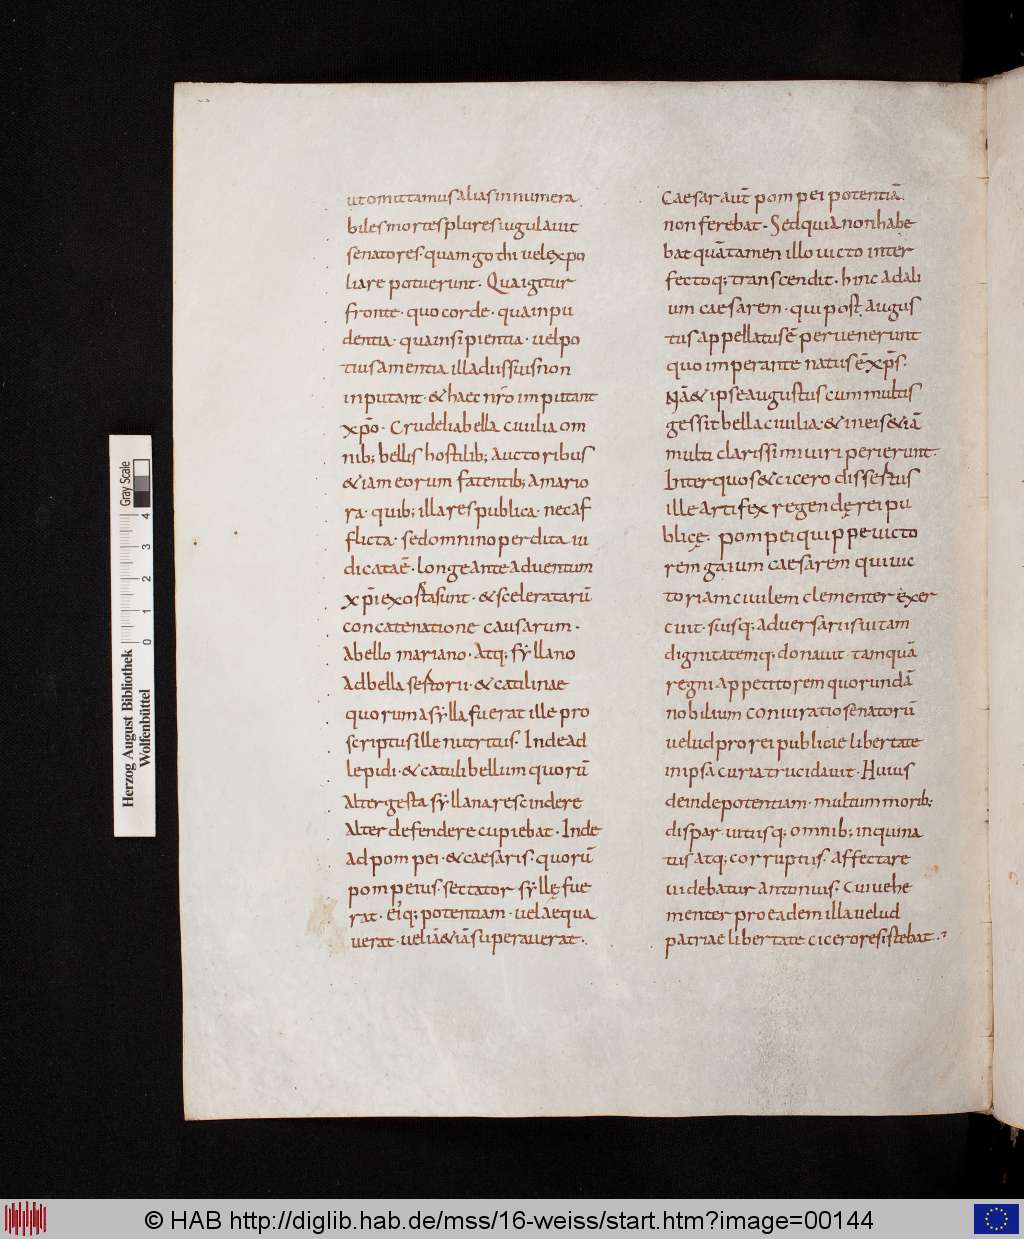 ut omittamus alias innumera
biles mortes plures iugulauit
senatores· quam gothi uel expo
liare potuerunt· Qua igitur
fronte· quo corde· qua inpu
dentia· qua insipientia· uel po
tius amentia illa diis suis non
inputant· & haec nr̄o imputant
xp̄o· Crudelia bella ciuilia om
nib; bellis hostilib; auctoribus
& iam eorum fatentib; amario
ra· quib; illa res publica· nec af
flicta· sed omnino perdita iu
dicata ē· longe ante aduentum
xp̄i exosta sunt· & sceleratarū
concatenatione causarum·
A bello mariano· Atq; syllano
Ad bella sestorii· & catilinae
quorum a sylla fuerat ille pro
scriptus ille nutritus· Inde ad
lepidi· & catuli bellum quorū
Alter gesta syllana rescindere
Alter defendere cupiebat· Inde
ad pompei· & caesaris· quorū
pompeius· sectator syllę fue
rat· eiq; potentiam· uel aequa
uerat· uel iā & iā superauerat·
Caesar aut̄ pompei potentiā
non ferebat· Sed quia non habe
bat quā tamen illo uicto inter
fectoq; transcendit· hinc ad ali
um caesarem· qui post augus
tus appellatus ē peruenerunt
quo imperante natus ē xp̄s·
Nā & ipse augustus cum multis
gessit bella ciuilia· & in eis & iā
multi clarissimi uiri perierunt·
Inter quos & cicero dissertus
ille artifex regendę rei pu
blicę· pompei quippe uicto
rem gaium caesarem qui uic
toriam ciuilem clementer exer
cuit· suisq; aduersariis uitam
dignitatemq; donauit tamquā
regni appetitorem quorundā
nobilium coniuratio senatorū
uelud pro rei publicae libertate
in ipsa curia trucidauit· Huius
deinde potentiam· multum morib;
dispar uitiisq; omnib; inquina
tus atq; corruptus· affectare
uidebatur antonius· Cui uehe
menter pro eadem illa uelud
patriae libertate cicero resistebat·
Gray Scale
4 3 2 1 0
Herzog August Bibliothek
Wolfenbüttel
© HAB http://diglib.hab.de/mss/16-weiss/start.htm?image=00144